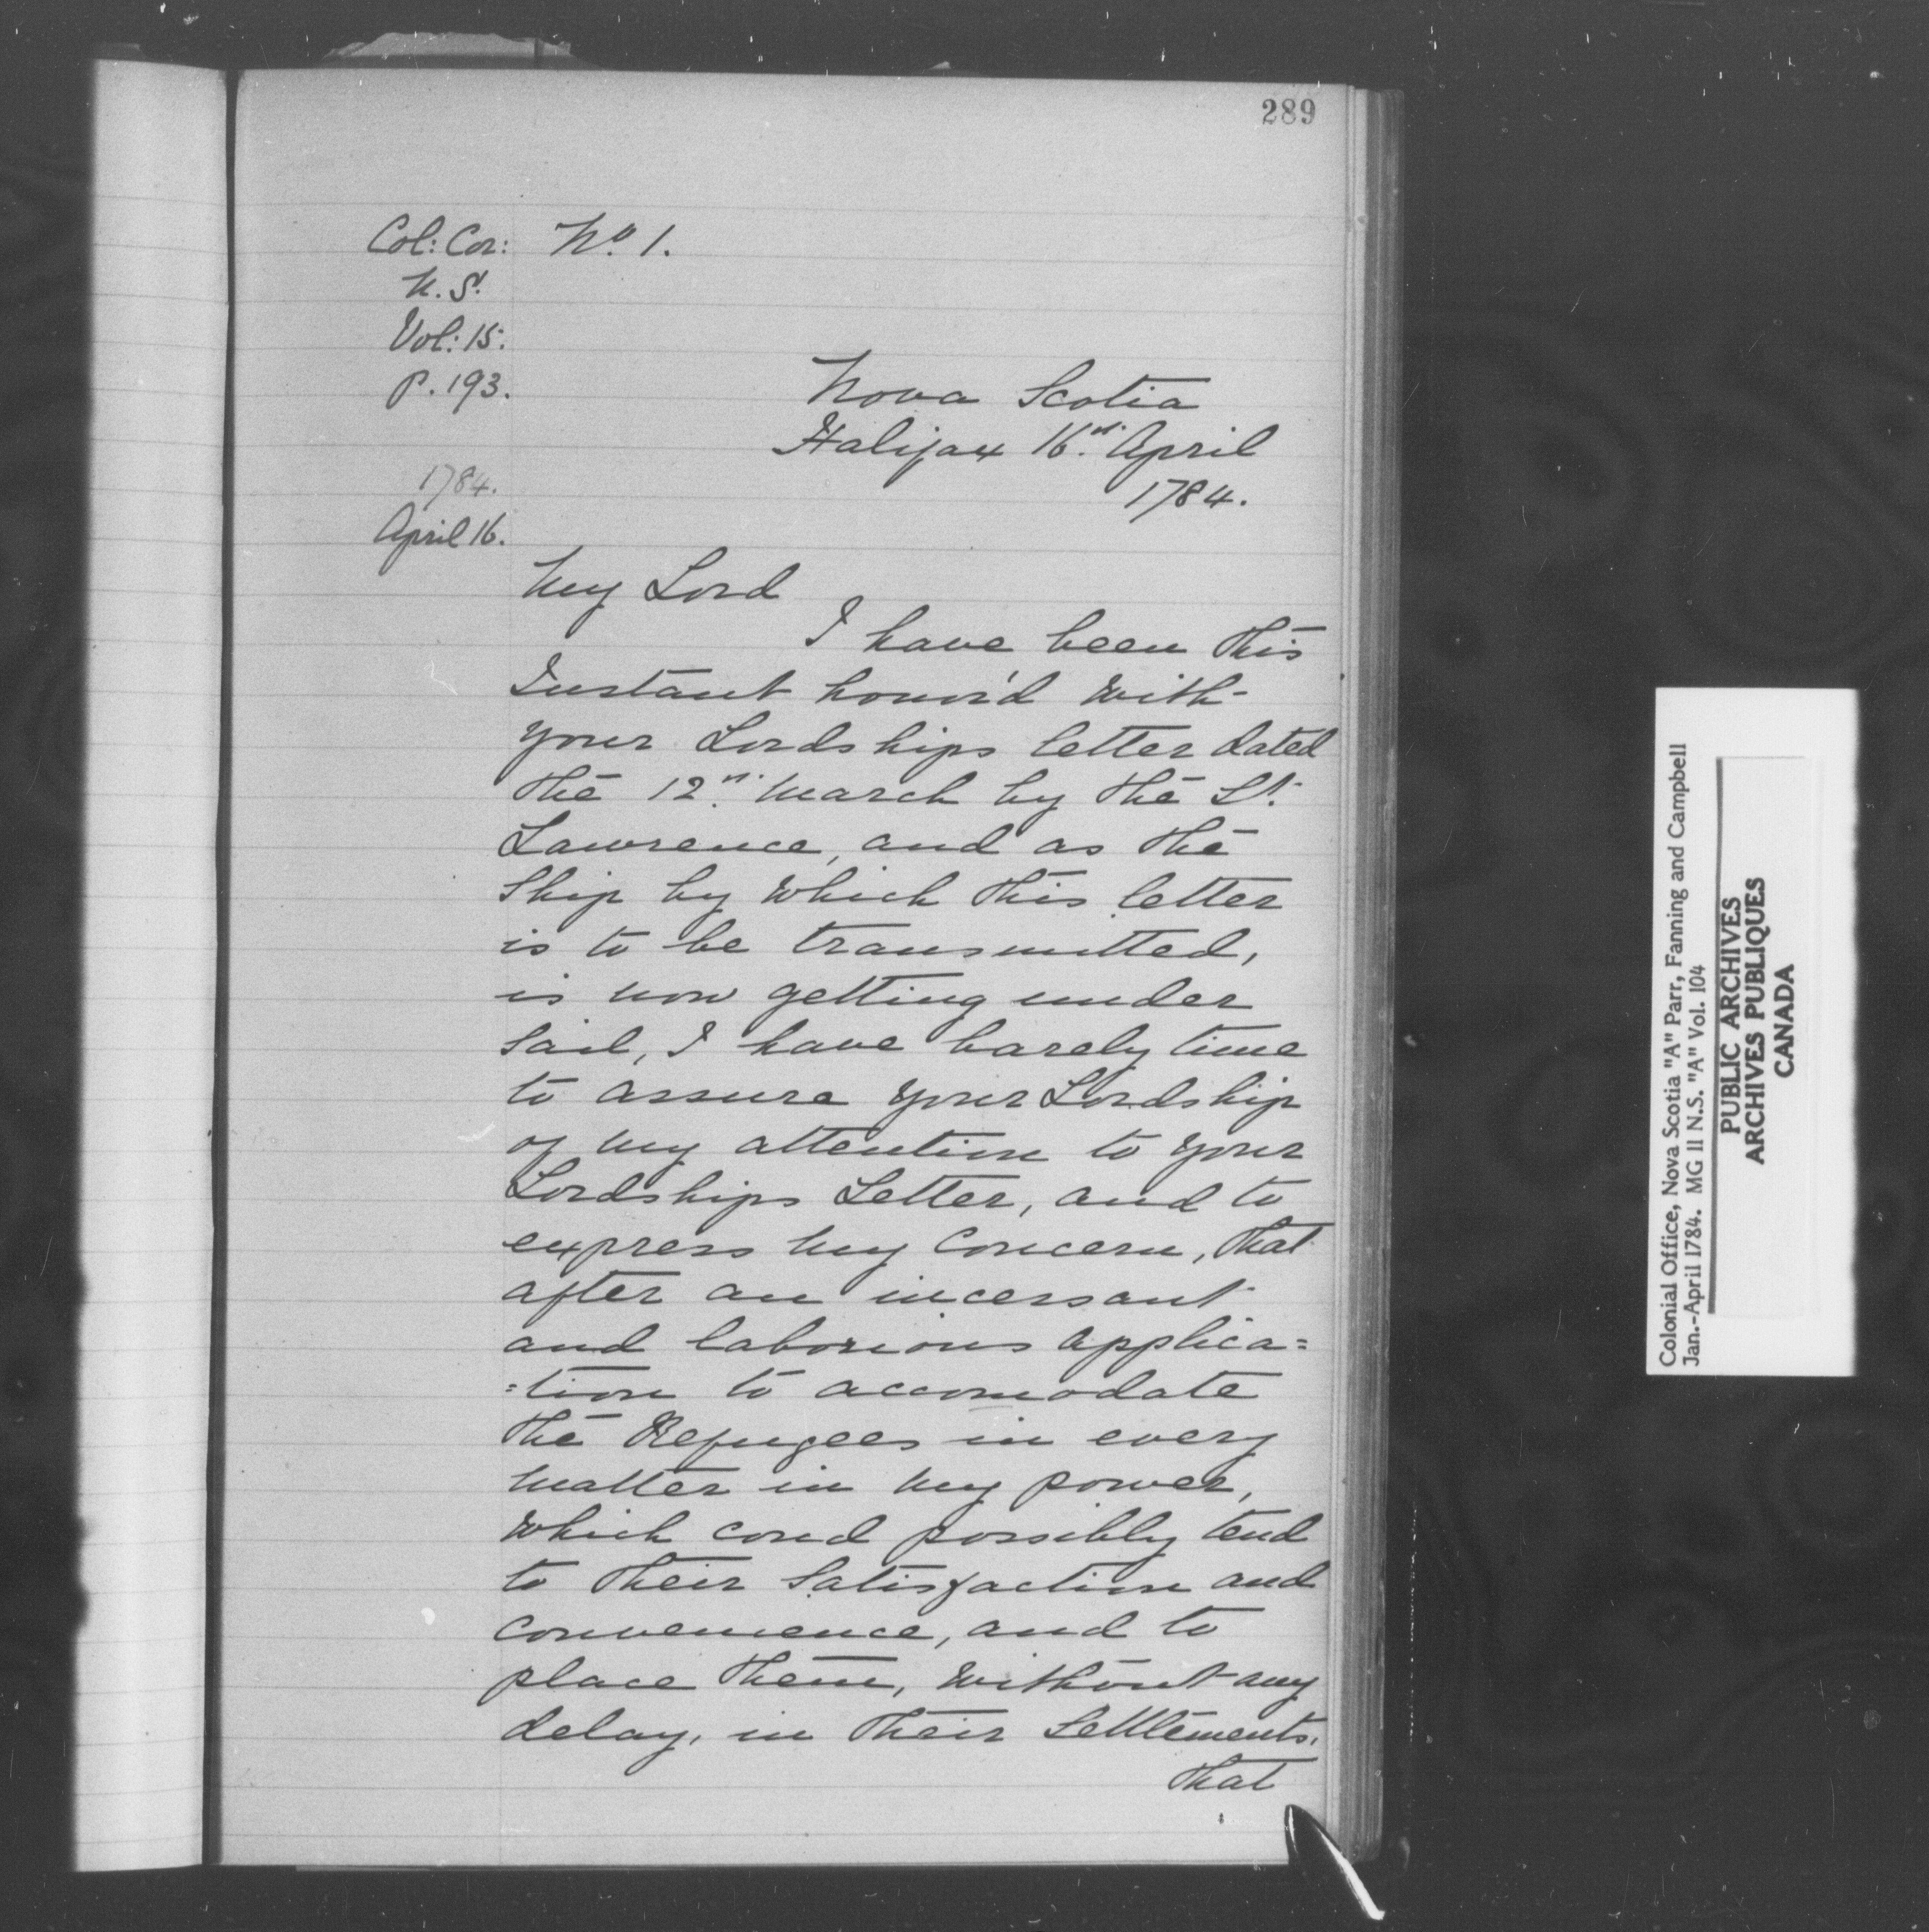 289
Col: Cor: No. 1.
N. S.
Vol: 15.
P. 193.
Nova Scotia
Halifax 16th. April
1784.
1784.
April 16.
My Lord
I have been this
Instant honor'd with
your Lordships letter dated
the 12th. March by the St.
Lawrence, and as the
Ship by which this letter
is to be transmitted,
is now getting under
Sail, I have barely time
to assure your Lordship
of my attention to your
Lordships Letter, and to
express my Concern, that
after an incessant
and laborious applica=
=tion to accomodate
the Refugees in every
matter in my power,
which coud possibly tend
to their Satisfaction and
Convenience, and to
place them, without any
delay, in their Settlements.
that
Colonial Office, Nova Scotia "A" Parr, Fanning and Campbell
Jan.-April 1784. MG 11 N.S. "A" Vol. 104
PUBLIC ARCHIVES
ARCHIVES PUBLIQUES
CANADA